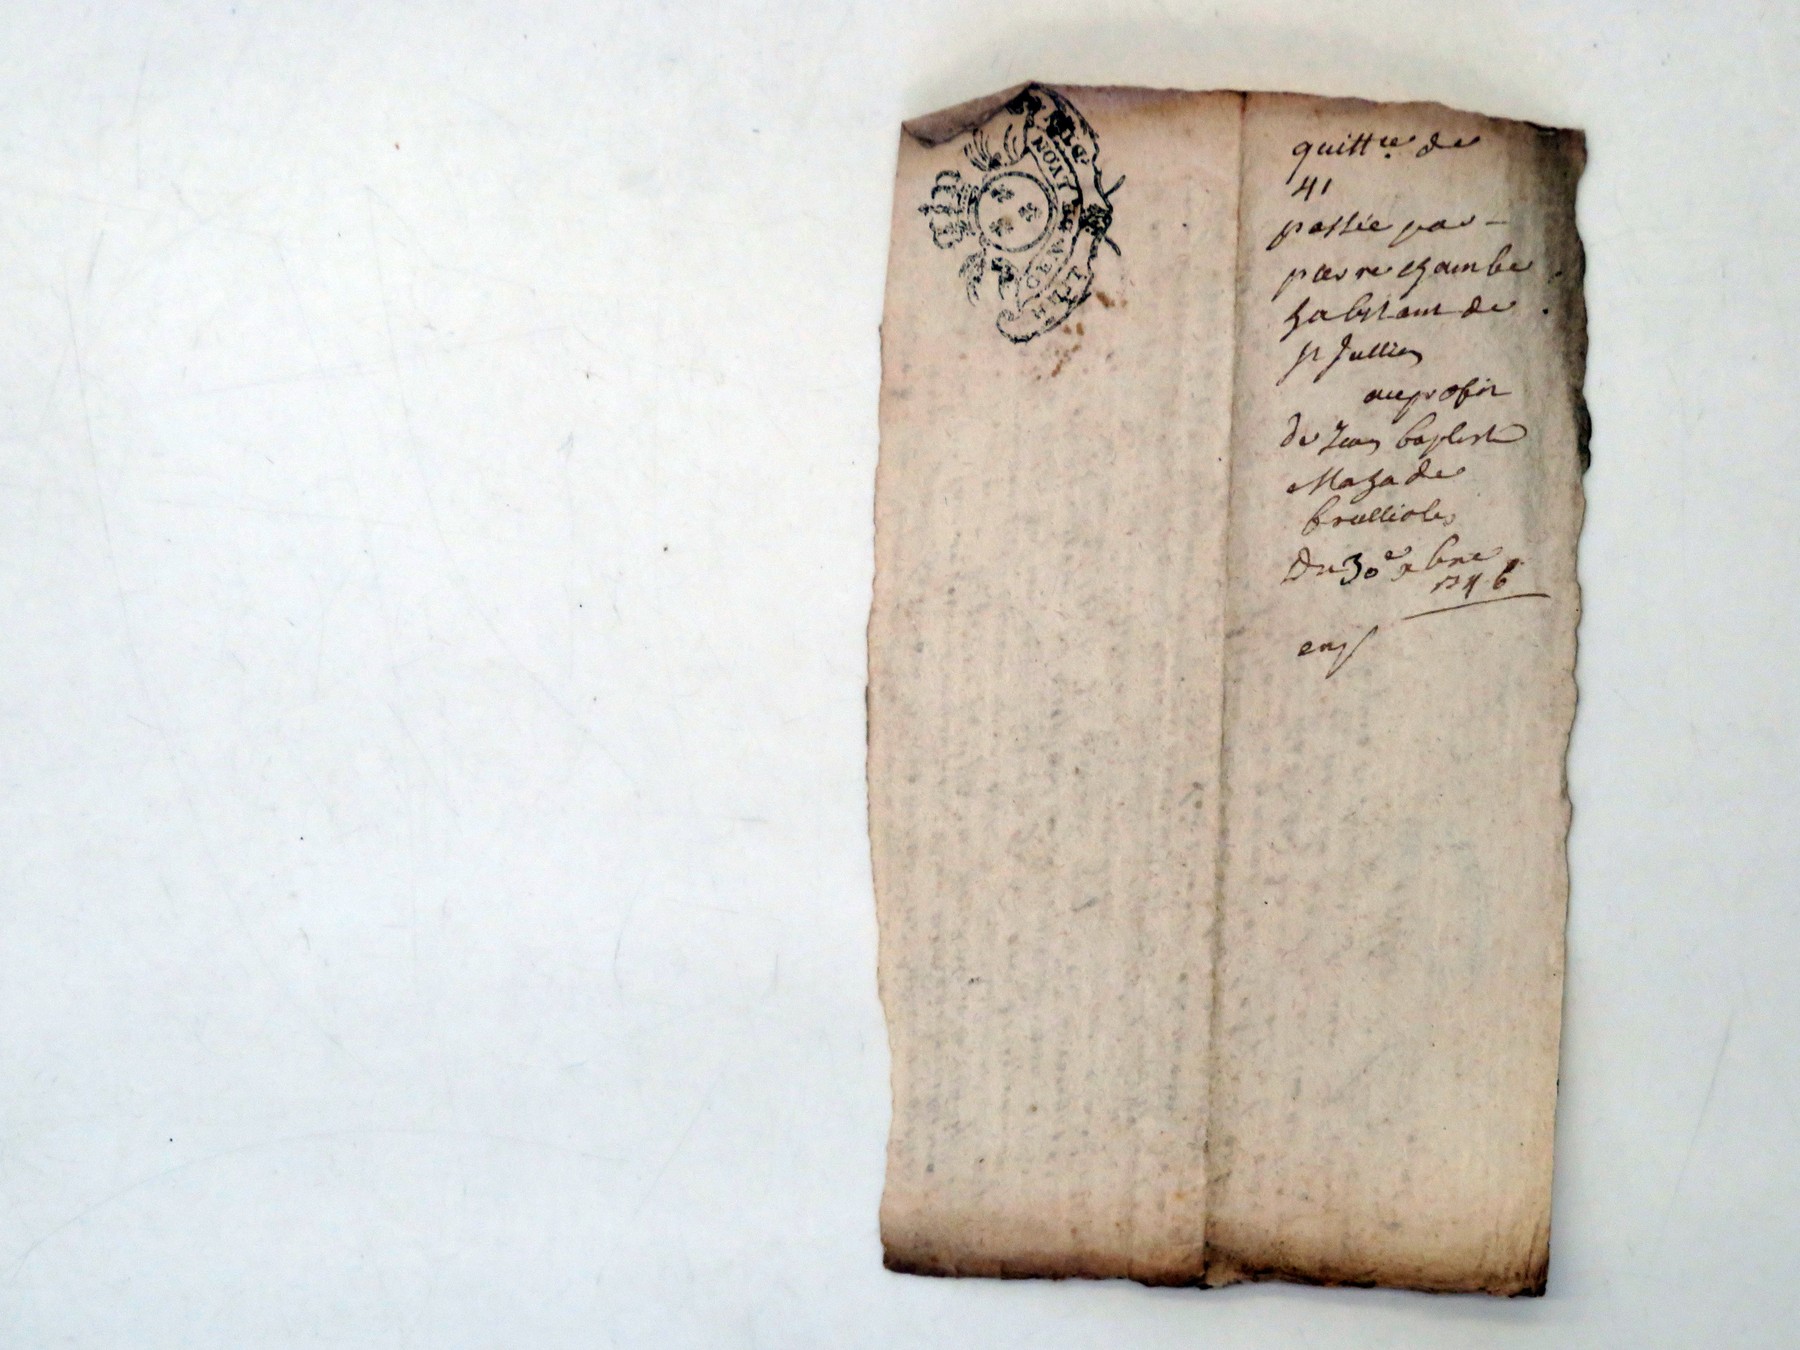 LYON
quitt.ce de
41
passée par –
pierre chambe
habitant de
st Jullien
au profit
de Jean baptiste
Mazade
brullioles
Du 30e xbre
1746